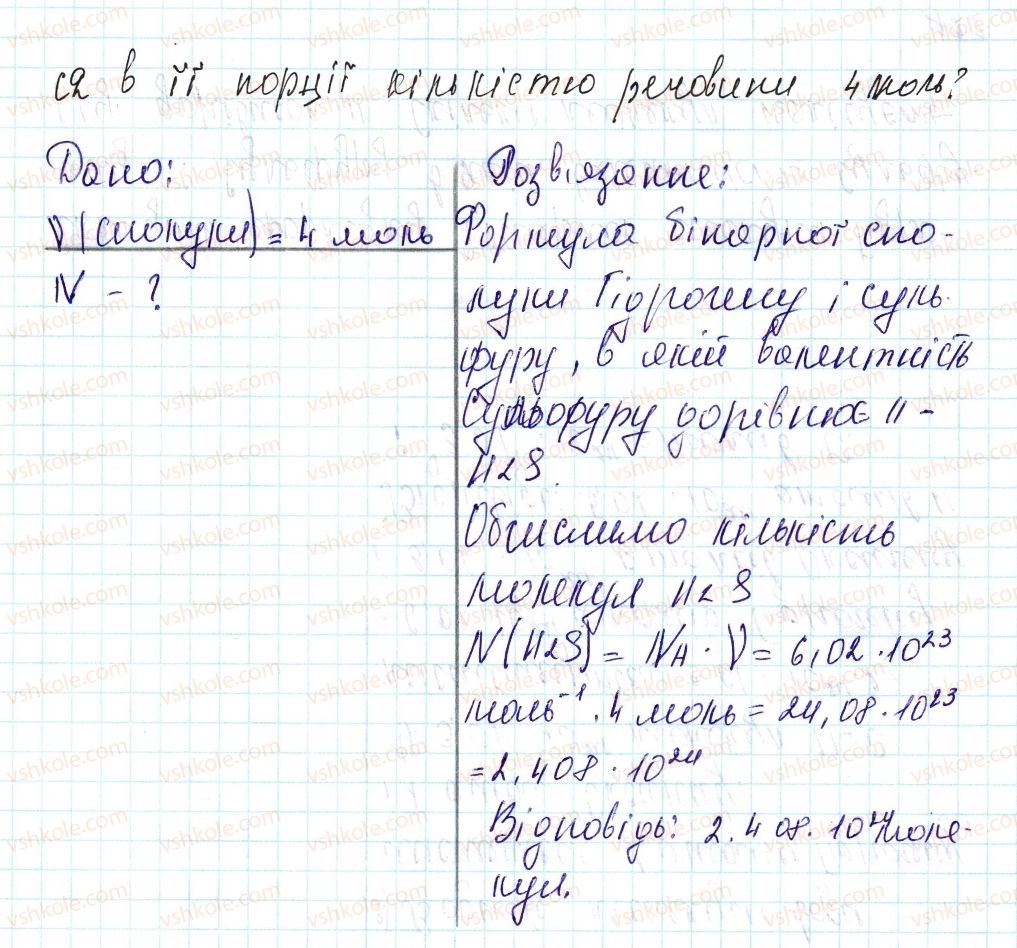 ся в її порції кількістю речовини 4 моль?
Дано:
ν(сполуки) = 4 моль
N - ?
Розв'язання:
Формула бінарної спо-
луки Гідрогену і суль
фуру, в якій валентність
Сульфуру дорівнює II -
H2S.
Обчислимо кількість
молекул H2S
N(H2S) = NA · ν = 6,02 · 10²³
моль⁻¹ · 4 моль = 24,08 · 10²³
= 2,408 · 10²⁴
Відповідь: 2.408 · 10²⁴ моле-
кул.
vshkole.com